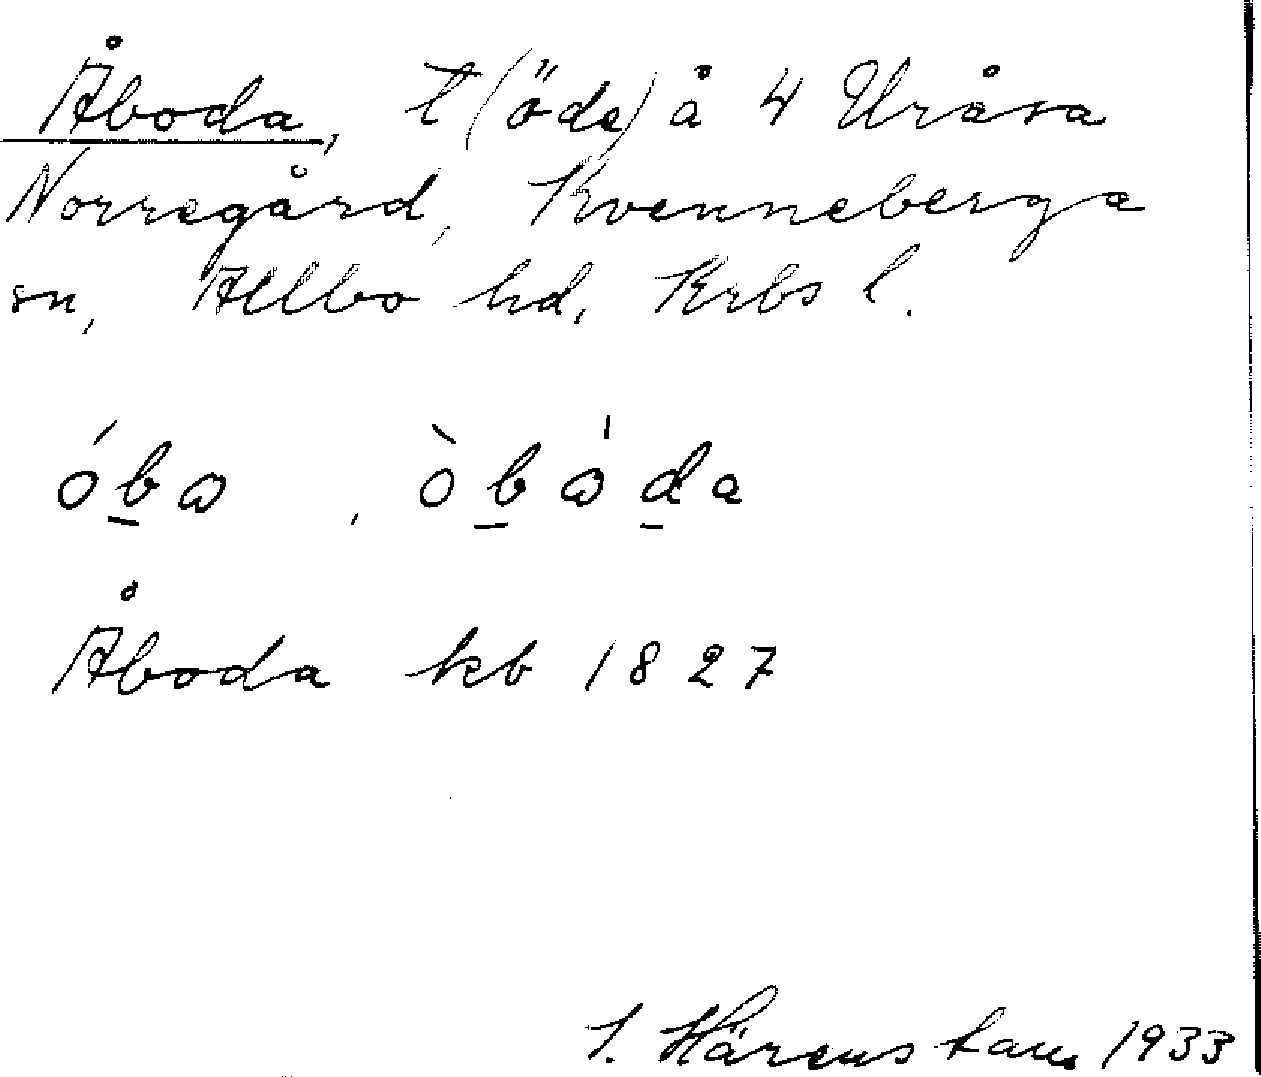 Åboda, t (öde) å 4 Uråsa
Norregård, Kvenneberga
sn, Allbo hd, Krbs l.
óbɷ , òbɷ̀da
Åboda kb 1827
S. Härenstam 1933